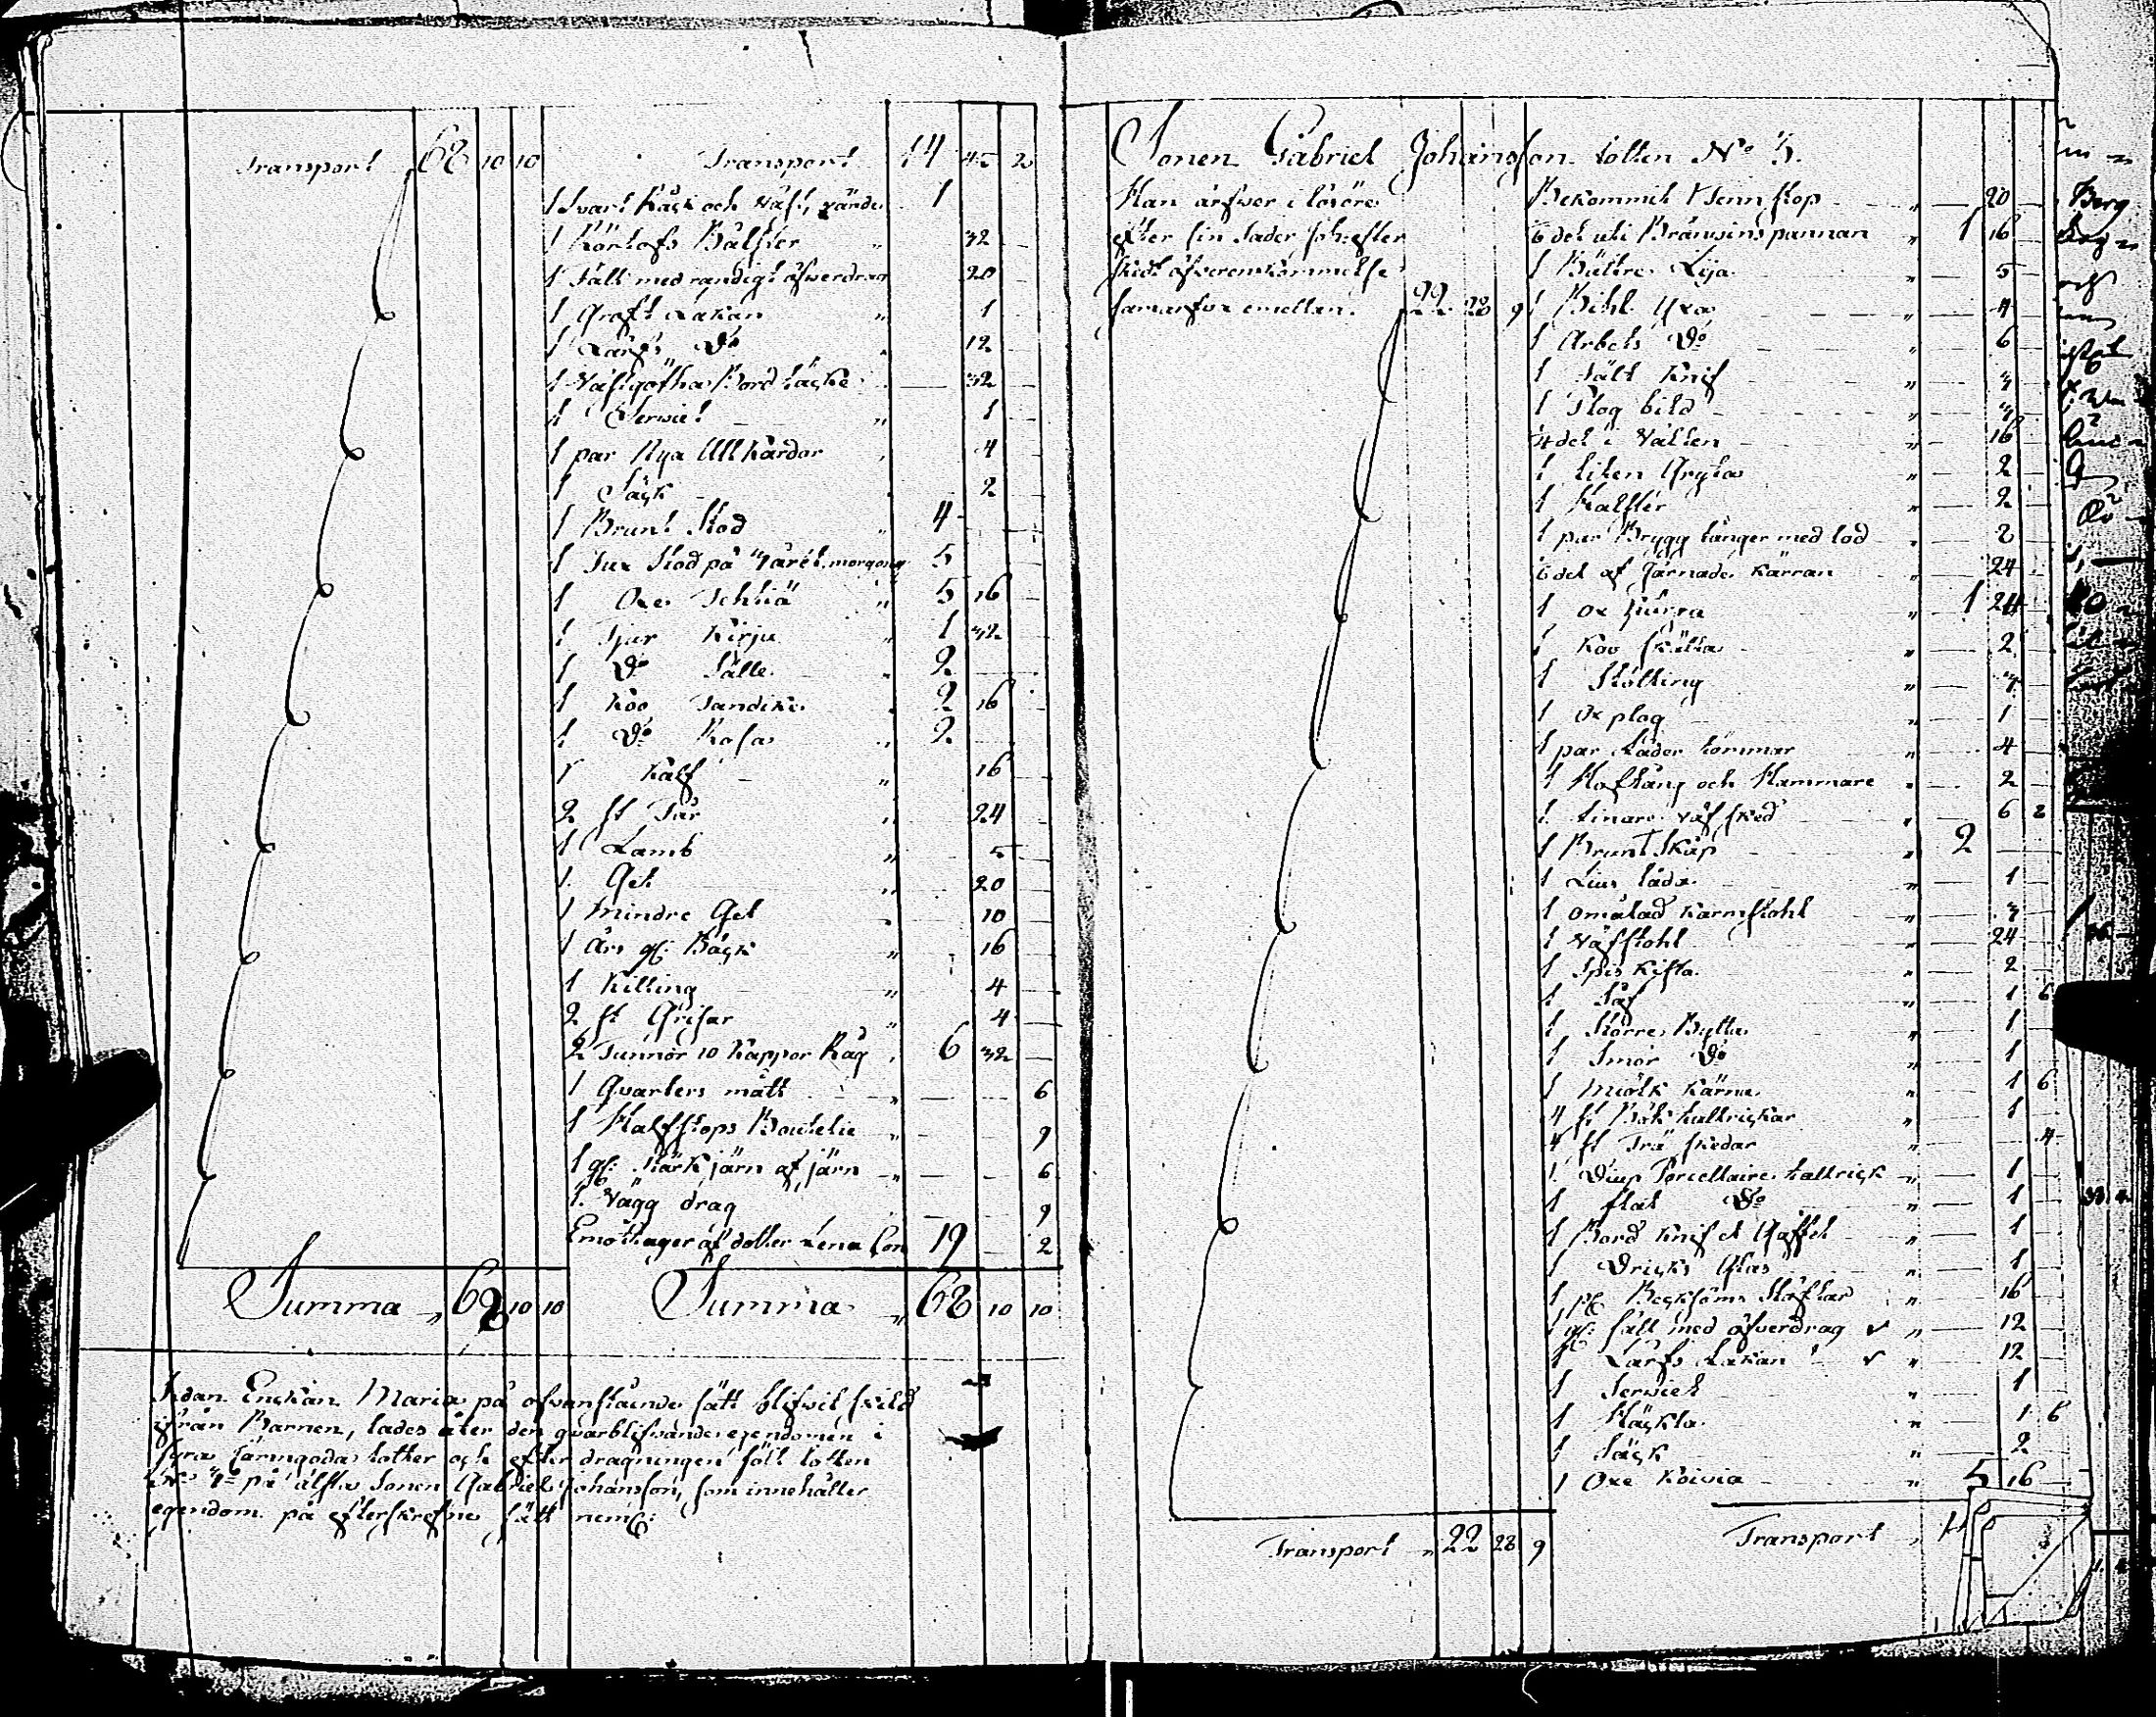 Transport 68 10 10
Transport 14 45 2
1 Svart Käck och Väst, värde 1
1 Körhofs Bälster " 32
1 Fäll med randigt öfwerdrag 20
1 Groft Lakan " 1
1 Lärfts Do " 12
1 Västgötha Bordtäcke 32
1 Serviet " 1
1 par Nya Ullkardor 4
1 Säck 2
1 Brunt Stod " 4
1 Oxe " 5 16
1 Tjur Kirju " 1 32
1 Do Sälle " 2
1 Koo " 2 16
1 Do Rosa " 2
1 Kalf " 16
2 st Får " 24
1 Lamb " 5
1 Get " 20
1 Mindre Get " 10
1 Års gl: Båck " 16
1 Killing " 4
2 st Grisar " 4
2 Tunnor 10 Kappor Råg " 6 32
1 Qvarters mått " 6
1 Halfstops Boutelie " 9
1 gl: Stärkjärn af järn " 6
1 Vägg drag 9
Emottager af dotter Lena 19 2
Summa " 68 10 10
Summa " 68 10 10
Sedan Enckan Maria på ofvanstående sätt blifvit skild
ifrån Barnen, lades åter den qvarblifvande egendomen i
fyra jämngoda lotter och efter dragningen föll lotten
No 3 på älsta Sonen Gabriel Johansson, som innehåller
egendom på efterskrefne sätt neml:
Sonen Gabriel Johansson lotten No 3.
Han ärfver i lösöre
efter sin Fader
skedt öfverenskommelse
samarfvar emellan. 22 28 9
Bekommit 1 Tenn stop " 20
6 del uti Bränvins pannan " 1 16
1 Bättre Lija " 5
1 Bihl Yxa " 4
1 Arbets Do " 6
1 Tält Knif " 3
1 Plog bild " 3
4 del i Välten " 16
1 liten Gryta " 2
1 Halster " 2
1 par Brygg tänger med lod " 2
6 del af Järnade Kärran " 24
1 ox " 1 24
1 Koo skälla " 2
1 Stölting " 3
1 Ox plog " 1
1 par Läder tömmar " 4
1 Hoftång och Hammare " 2
1 Linare väf sked 6 2
1 Brunt Skåp " 2
1 Lius låda " 1
1 Omålad Karmstohl " 3
1 Väfstohl " 24
1 Spis kista " 2
1 Såf " 1 6
1 Större Bytta " 1
1 Smör Do " 1
1 Miölk Kärna " 1 6
4 st Bök talrickar " 1
4 st Trä skedar " 4
1 Diup Porcellaine tallrick " 1
1 flat Do " 1
1 Bord Knif et Gaffel " 1
1 Dricks Glas " 1
1 pr Becksöms Stöflar " 16
1 gl: fäll med öfverdrag " 12
1 Lärfts Lakan " 12
1 Serviet " 1
1 Häckla " 1 6
1 Säck " 2
1 Oxe Koivia " 5 16
Transport " 22 28 9
Transport